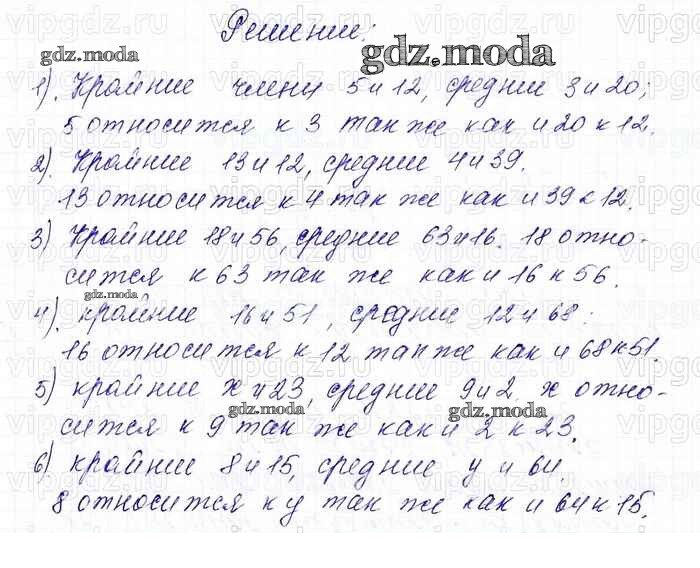 Решение:
gdz.moda
gdz.moda
1). Крайние члени 5 и 12, средние 3 и 20;
5 относится к 3 так же как и 20 к 12.
2). Крайние 13 и 12, средние 4 и 39.
13 относится к 4 так же как и 39 к 12.
3) Крайние 18 и 56, средние 63 и 16. 18 отно-
сится к 63 так же как и 16 к 56.
gdz.moda
4). крайние 16 и 51, средние 12 и 68.
16 относится к 12 так же как и 68 к 51.
5) крайние x и 23, средние 9 и 2. x отно-
gdz.moda
gdz.moda
сится к 9 так же как и 2 к 23.
6) крайние 8 и 15, средние y и 64.
8 относится к y так же как и 64 к 15.